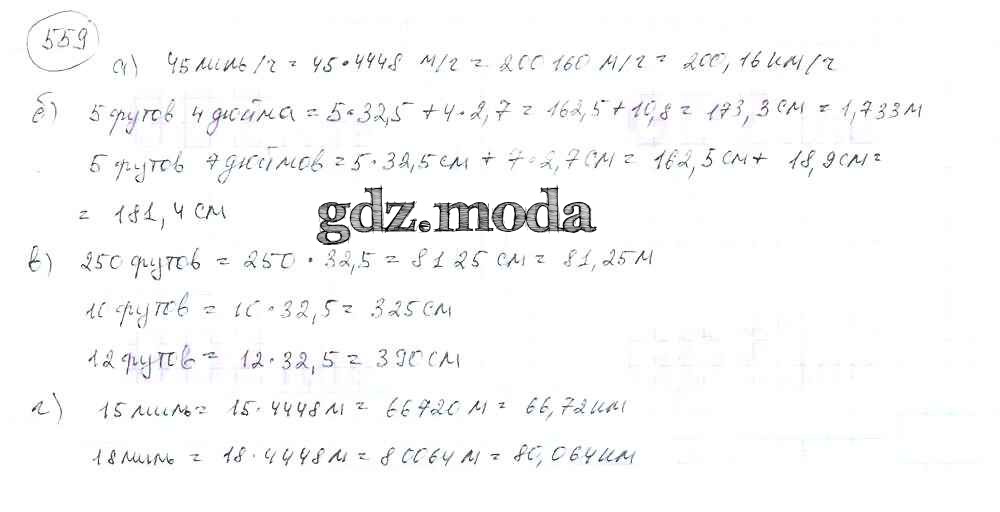 559
а) 45 миль/ч = 45·4448 м/ч = 200160 м/ч = 200,16 км/ч
б) 5 футов 4 дюйма = 5·32,5 + 4·2,7 = 162,5 + 10,8 = 173,3 см = 1,733 м
5 футов 7 дюймов = 5·32,5 см + 7·2,7 см = 162,5 см + 18,9 см =
= 181,4 см
gdz.moda
в) 250 футов = 250·32,5 = 8125 см = 81,25 м
10 футов = 10·32,5 = 325 см
12 футов = 12·32,5 = 390 см
г) 15 миль = 15·4448 м = 66720 м = 66,72 км
18 миль = 18·4448 м = 80064 м = 80,064 км